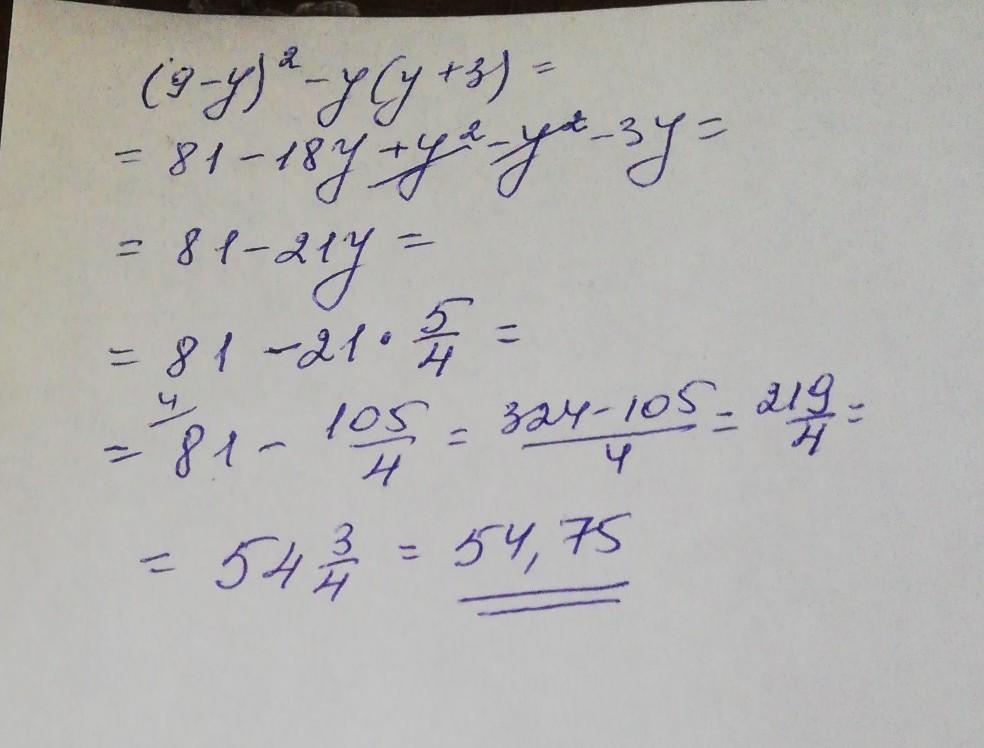 (9-y)² - y(y+3) =
= 81 - 18y + y² - y² - 3y =
= 81 - 21y =
= 81 - 21 · 5/4 =
= 81 4/ - 105/4 = 324-105/4 = 219/4 =
= 54 3/4 = 54,75